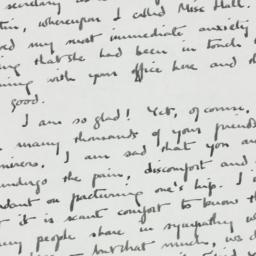 secretary
, whereupon I called Miss Hull.
my most immediate anxiety
that she had been in touch
with your office here and
good.
I am so glad! Yet, of course,
many thousands of your friends
. I am sad that you
undergo the pain, discomfort and
on fracturing one's hip. I
it is scant comfort to know
people share in sympathy
but that much, we